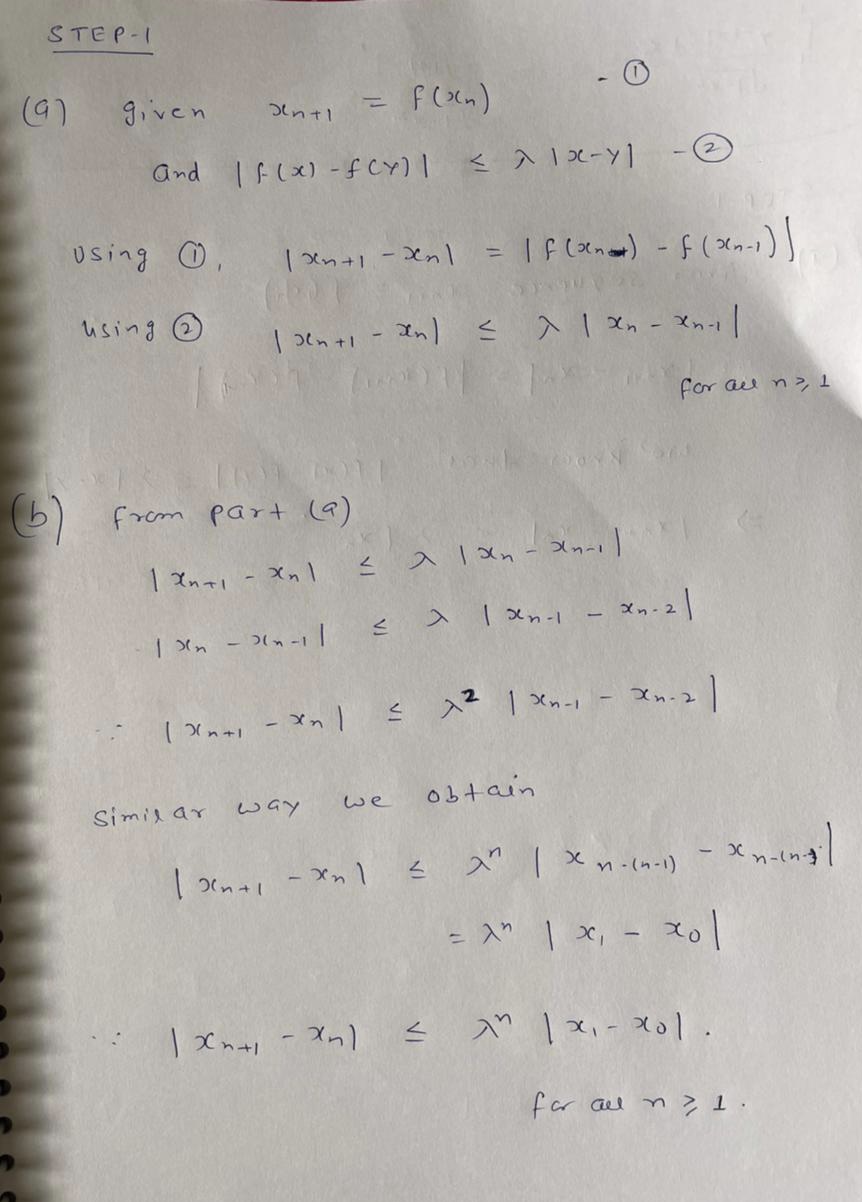 STEP-1
(a) given xn+1 = f(xn) - ①
and |f(x) - f(y)| ≤ λ |x-y| - ②
Using ①, |xn+1 - xn| = |f(xn) - f(xn-1)|
Using ② |xn+1 - xn| ≤ λ |xn - xn-1|
for all n ≥ 1
(b) from part (a)
|xn+1 - xn| ≤ λ |xn - xn-1|
|xn - xn-1| ≤ λ |xn-1 - xn-2|
∵ |xn+1 - xn| ≤ λ² |xn-1 - xn-2|
Similar way we obtain
|xn+1 - xn| ≤ λⁿ |xn-(n-1) - xn-(n-
= λⁿ |x1 - x0|
∵ |xn+1 - xn| ≤ λⁿ |x1 - x0|.
for all n ≥ 1.